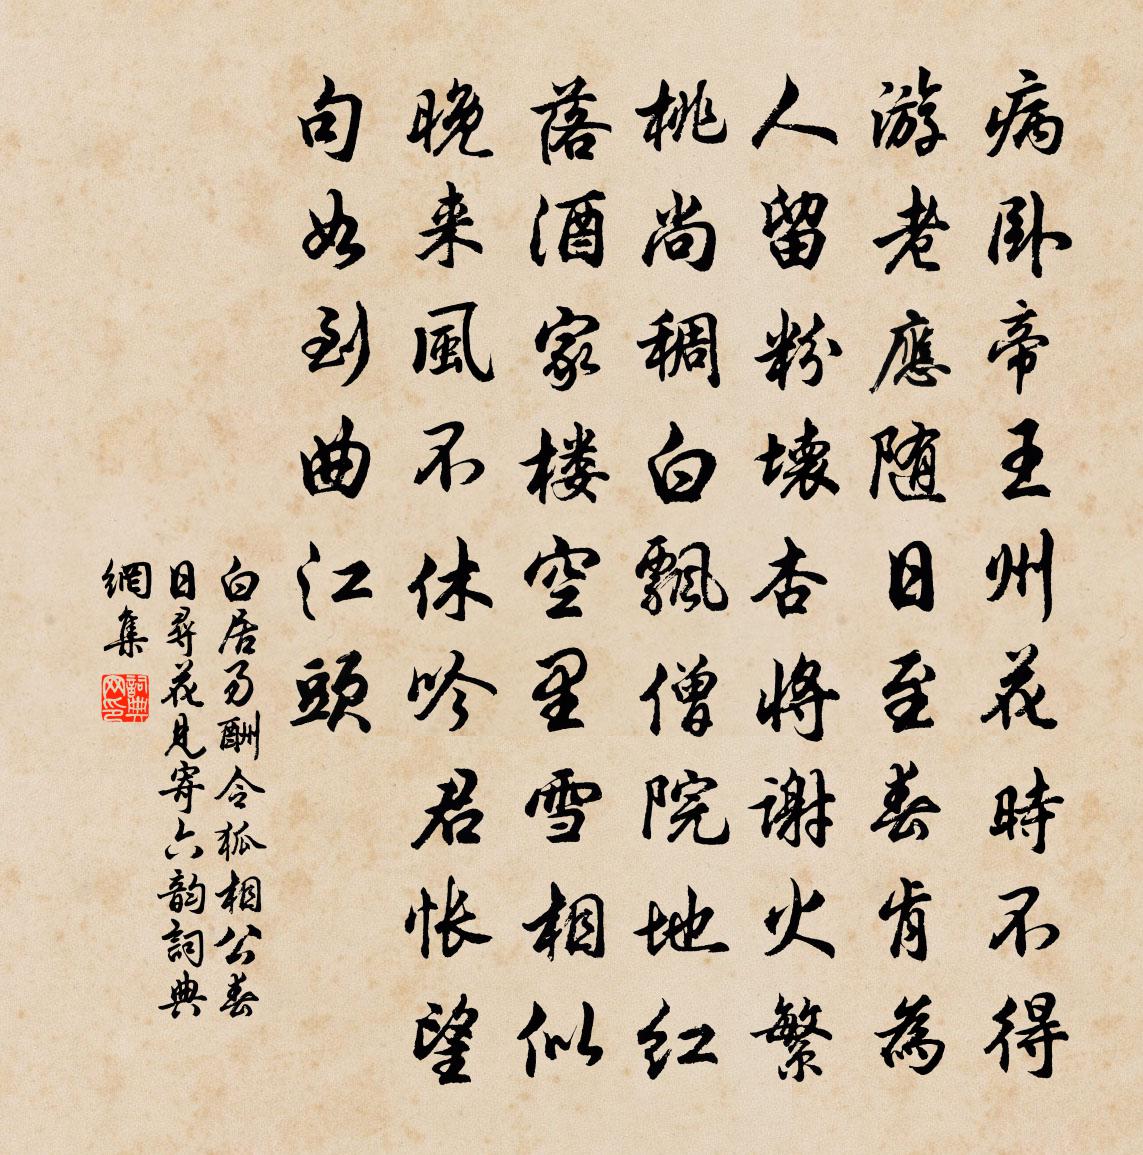 病卧帝王州花時不得
游老應随日至春肯為
人留粉壊杏将謝火繁
桃尚稠白飄僧院地红
落酒家楼空里雪相似
晚来風不休吟君怅望
句如到曲江頭
白居易酬令狐相公春
日尋花見寄六韵詞典
網集
詞典网印